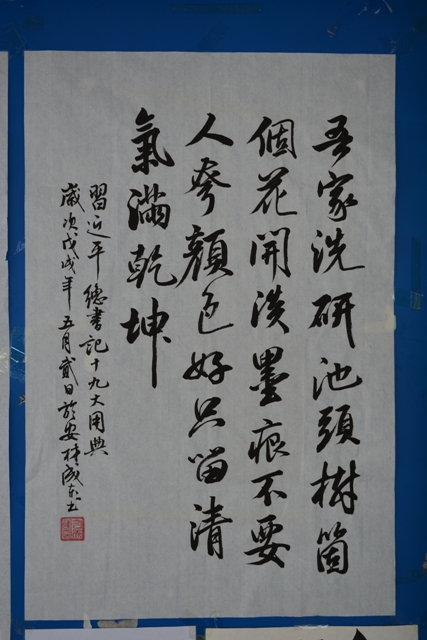 吾家洗研池頭樹箇
個花開淡墨痕不要
人夸顏色好只留清
氣滿乾坤
習近平總書記十九大用典
歲次戊戌年五月貳日於安林成東書